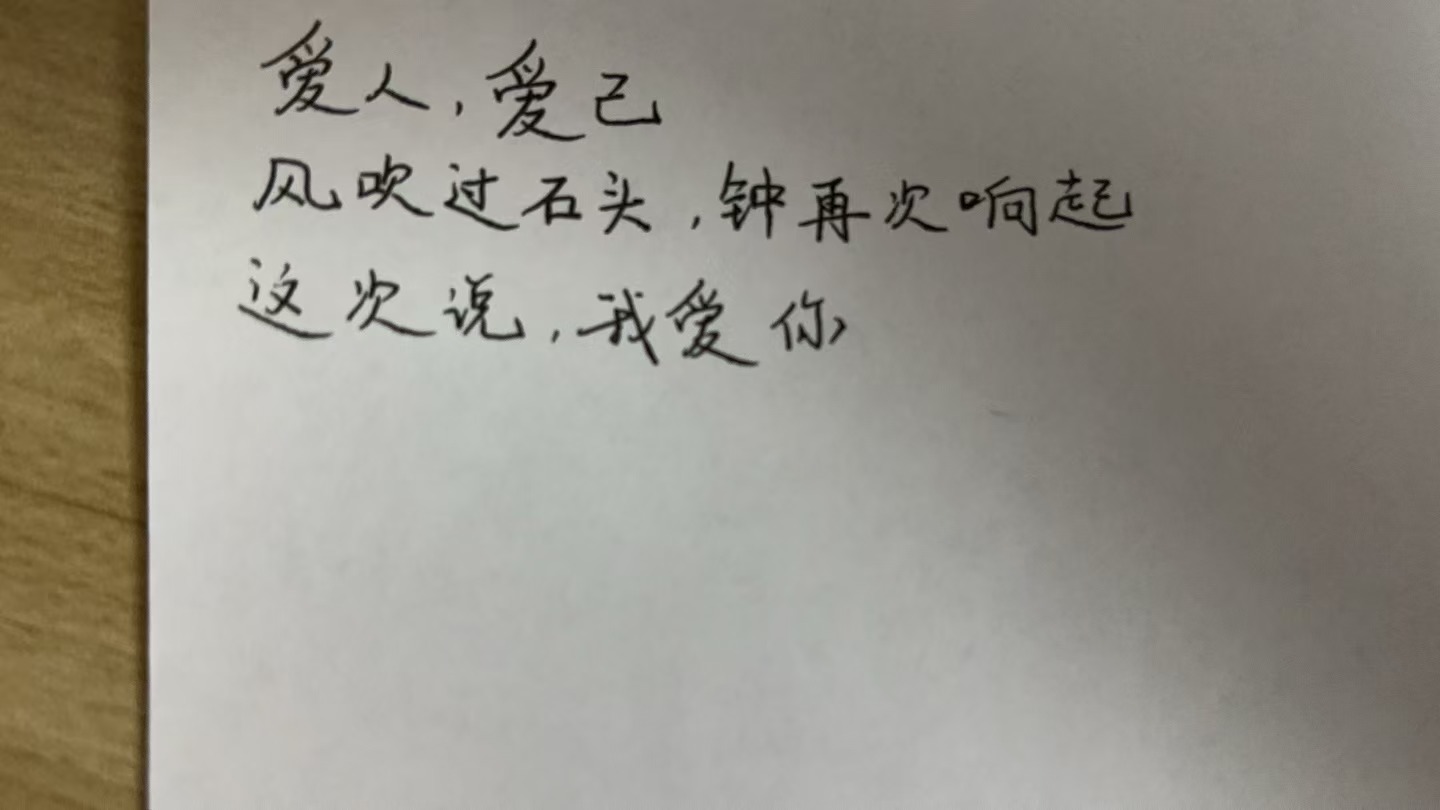 爱人，爱己
风吹过石头，钟再次响起
这次说，我爱你